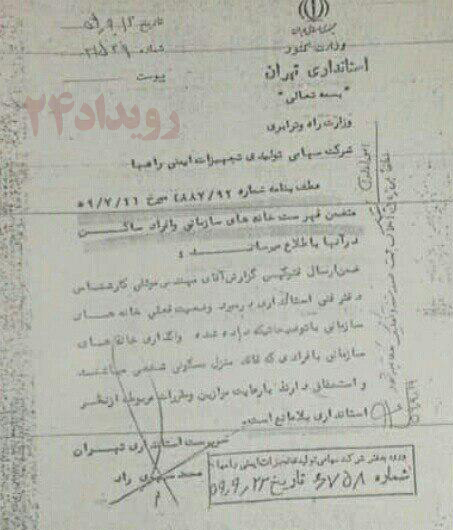 جمهوری اسلامی ایران
وزارت کشور
استانداری تهران
"بسمه تعالی"
تاریخ
شماره
پیوست
رویداد۲۴
وزارت راه و ترابری
شرکت سهامی تولیدی تجهیزات ایمنی راهها
عطف بنامه شماره ۲۸۸۷/۹۲ مورخ ۵۹/۷/۲۶
متضمن فهرست خانه های سازمانی وافراد ساکن
درآنها باطلاع میرساند :
ضمن ارسال فتوکپی گزارش آقای مهندس کارشناس
دفتر فنی استانداری درمورد وضعیت فعلی خانه های
سازمانی باتوضیحاتیکه داده شده واگذاری خانه های
سازمانی بافرادی که فاقد منزل مسکونی شخصی میباشند
و استحقاق دارند بارعایت موازین ومقررات مربوطه ازنظر
استانداری بلامانع است.
سرپرست استانداری تهران
محمد
ورود به دفتر شرکت سهامی تولید تجهیزات ایمنی راهها
شماره ۶۷۵۸ تاریخ ۵۹/۹/۲۳